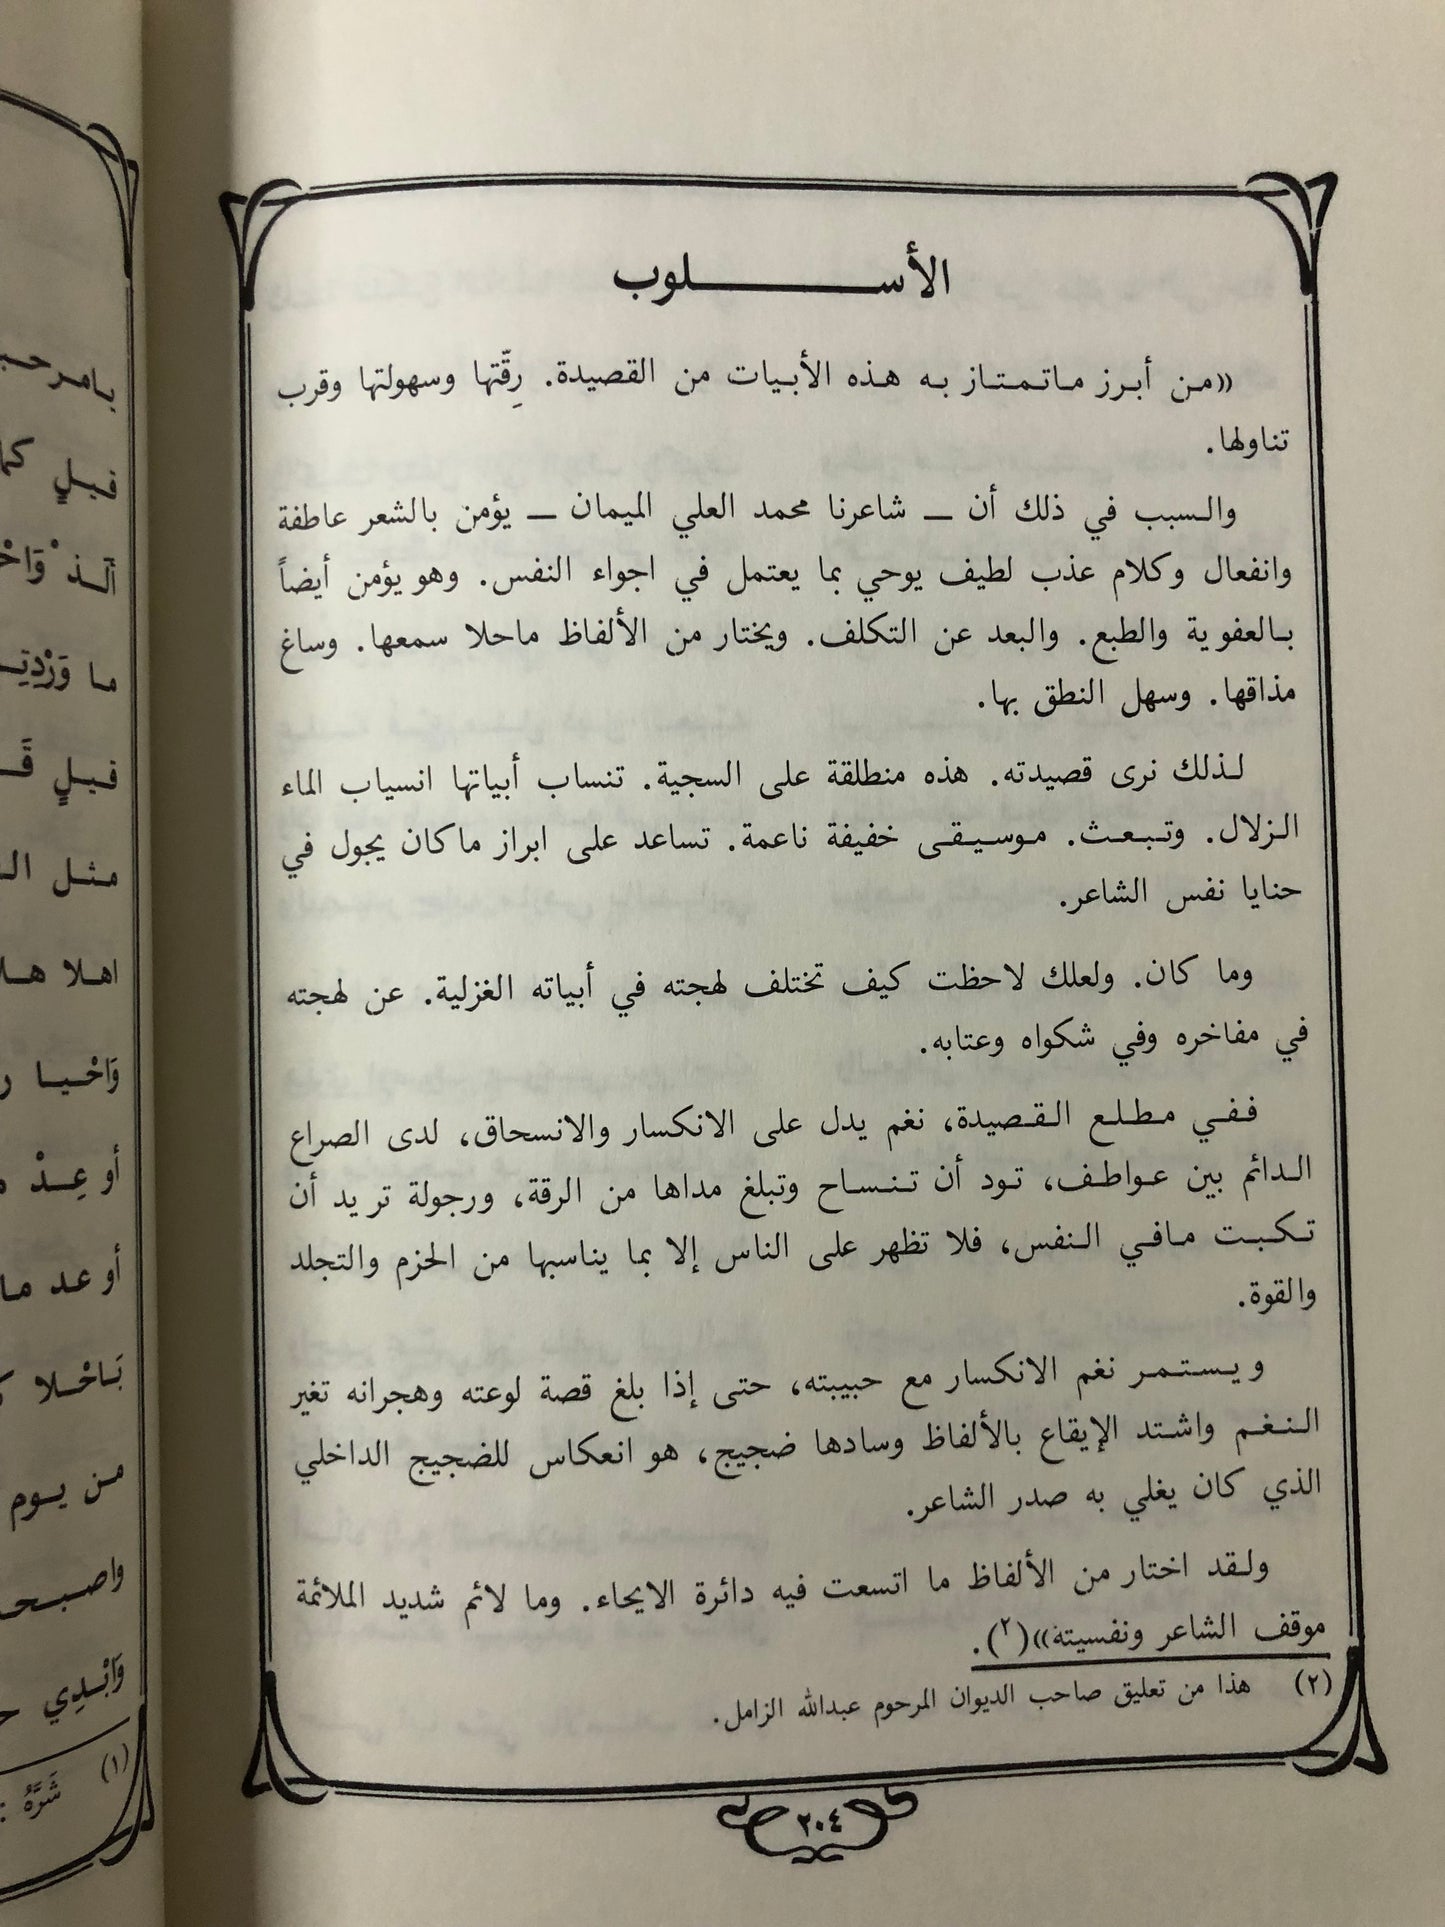 الأســــلوب
«من أبرز ماتمتاز به هذه الأبيات من القصيدة. رِقّتها وسهولتها وقرب
تناولها.
والسبب في ذلك أن ــ شاعرنا محمد العلي الميمان ــ يؤمن بالشعر عاطفة
وانفعال وكلام عذب لطيف يوحي بما يعتمل في اجواء النفس. وهو يؤمن أيضاً
بالعفوية والطبع. والبعد عن التكلف. ويختار من الألفاظ ماحلا سمعها. وساغ
مذاقها. وسهل النطق بها.
لذلك نرى قصيدته. هذه منطلقة على السجية. تنساب أبياتها انسياب الماء
الزلال. وتبعث. موسيقى خفيفة ناعمة. تساعد على ابراز ماكان يجول في
حنايا نفس الشاعر.
وما كان. ولعلك لاحظت كيف تختلف لهجته في أبياته الغزلية. عن لهجته
في مفاخره وفي شكواه وعتابه.
ففي مطلع القصيدة، نغم يدل على الانكسار والانسحاق، لدى الصراع
الدائم بين عواطف، تود أن تنساح وتبلغ مداها من الرقة، ورجولة تريد أن
تكبت مافي النفس، فلا تظهر على الناس إلا بما يناسبها من الحزم والتجلد
والقوة.
ويستمر نغم الانكسار مع حبيبته، حتى إذا بلغ قصة لوعته وهجرانه تغير
النغم واشتد الإيقاع بالألفاظ وسادها ضجيج، هو انعكاس للضجيج الداخلي
الذي كان يغلي به صدر الشاعر.
ولقد اختار من الألفاظ ما اتسعت فيه دائرة الايحاء. وما لائم شديد الملائمة
موقف الشاعر ونفسيته»(٢).
(٢) هذا من تعليق صاحب الديوان المرحوم عبدالله الزامل.
٢٠٤
يامرحبا
قيلٍ
ما
قيلٍ
مثل
اهلا
وَاحْيا
أو عِدْ
أو عد ما
يَاحْلا
من يوم
وَابْدِي
(١) شَرَّهُ :